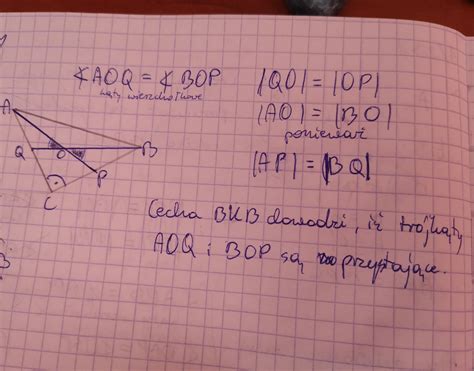 ∢AOQ = ∢BOP
kąty wierzchołkowe
|QO| = |OP|
|AO| = |BO|
ponieważ
|AP| = |BQ|
A
Q
O
B
P
C
Cecha BKB dowodzi, iż trójkąty
AOQ i BOP są przystające.